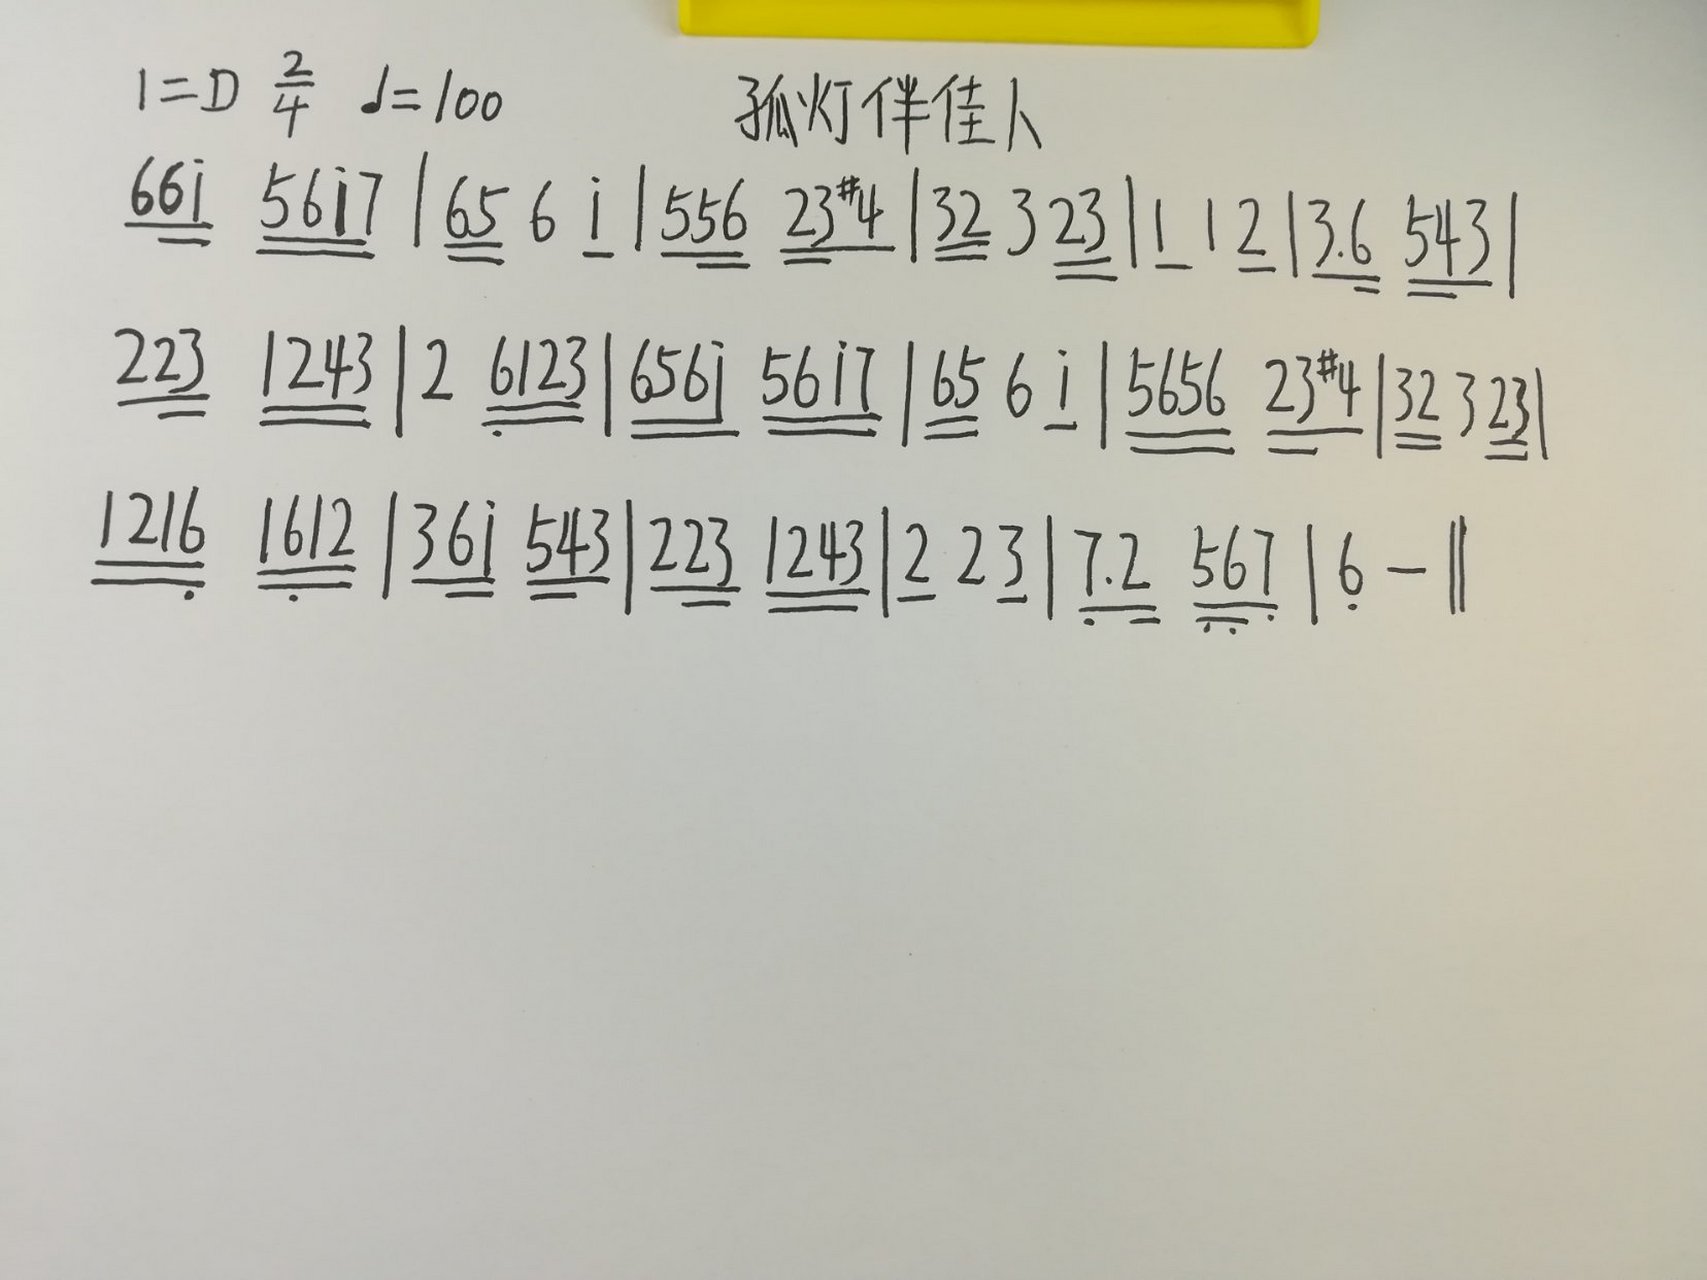 1=D 2/4 ♩=100 孤灯伴佳人
66i 56i7 | 65 6 i | 556 23#4 | 32 3 23 | 1 1 2 | 3.6 543 |
223 1243 | 2 6123 | 656i 56i7 | 65 6 i | 5656 23#4 | 32 3 23 |
1216 1612 | 36i 543 | 223 1243 | 2 2 3 | 7.2 567 | 6 - ‖